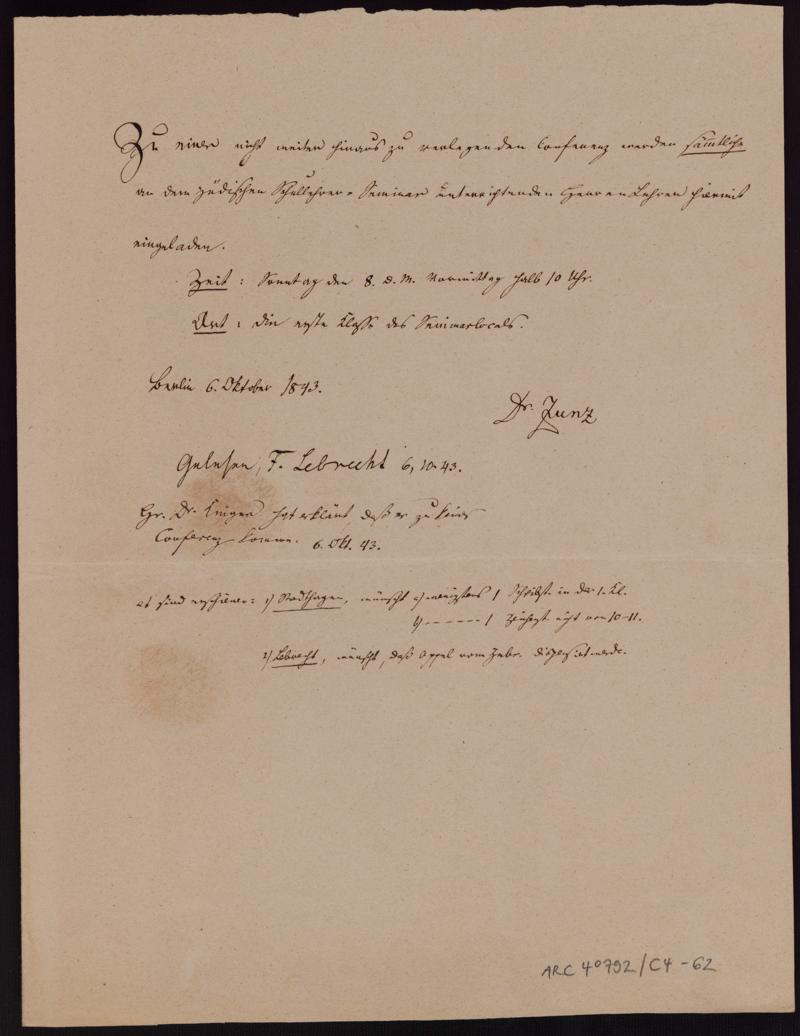 Zu einer nicht weiter hinaus zu verlegenden Conferenz werden sämtliche
an dem jüdischen Schullehrer-Seminar unterrichtenden Herren Lehrer hiermit
eingeladen.
Zeit: Sonntag den 8. d. M. Vormittag halb 10 Uhr.
Ort: die erste Klasse des Seminarlocals.
Berlin 6. Oktober 1843.
Dr. Zunz
Gelesen, F. Lebrecht 6, 10. 43.
Hr. Dr. hat erklärt, daß er zu keiner
Conferenz komme. 6. Okt. 43.
es sind erschienen: 1) Stadthagen, wünscht a) wenigstens 1 in der 1. Kl.
b) - - - - - - 1 nicht von 10-11.
2) Lebrecht, wünscht, daß Appel vom Hebr. dispensirt werde.
ARC 4°792/C4-62